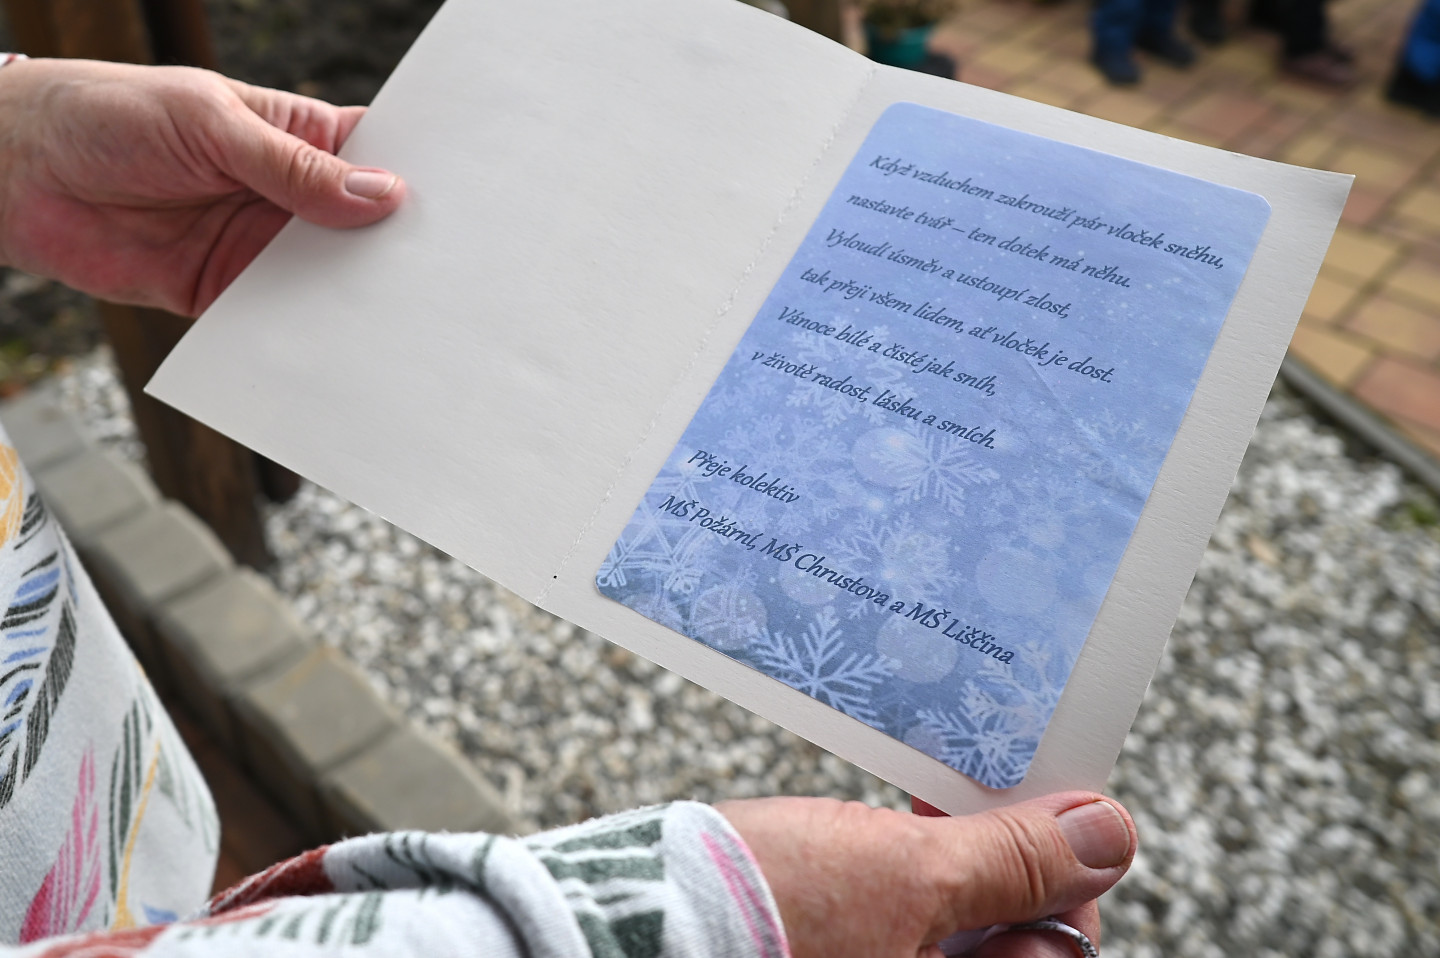 Když vzduchem zakrouží pár vloček sněhu,
nastavte tvář – ten dotek má něhu.
Vyloudí úsměv a ustoupí zlost,
tak přeji všem lidem, ať vloček je dost.
Vánoce bílé a čisté jak sníh,
v životě radost, lásku a smích.
Přeje kolektiv
MŠ Požární, MŠ Chrustova a MŠ Liščina